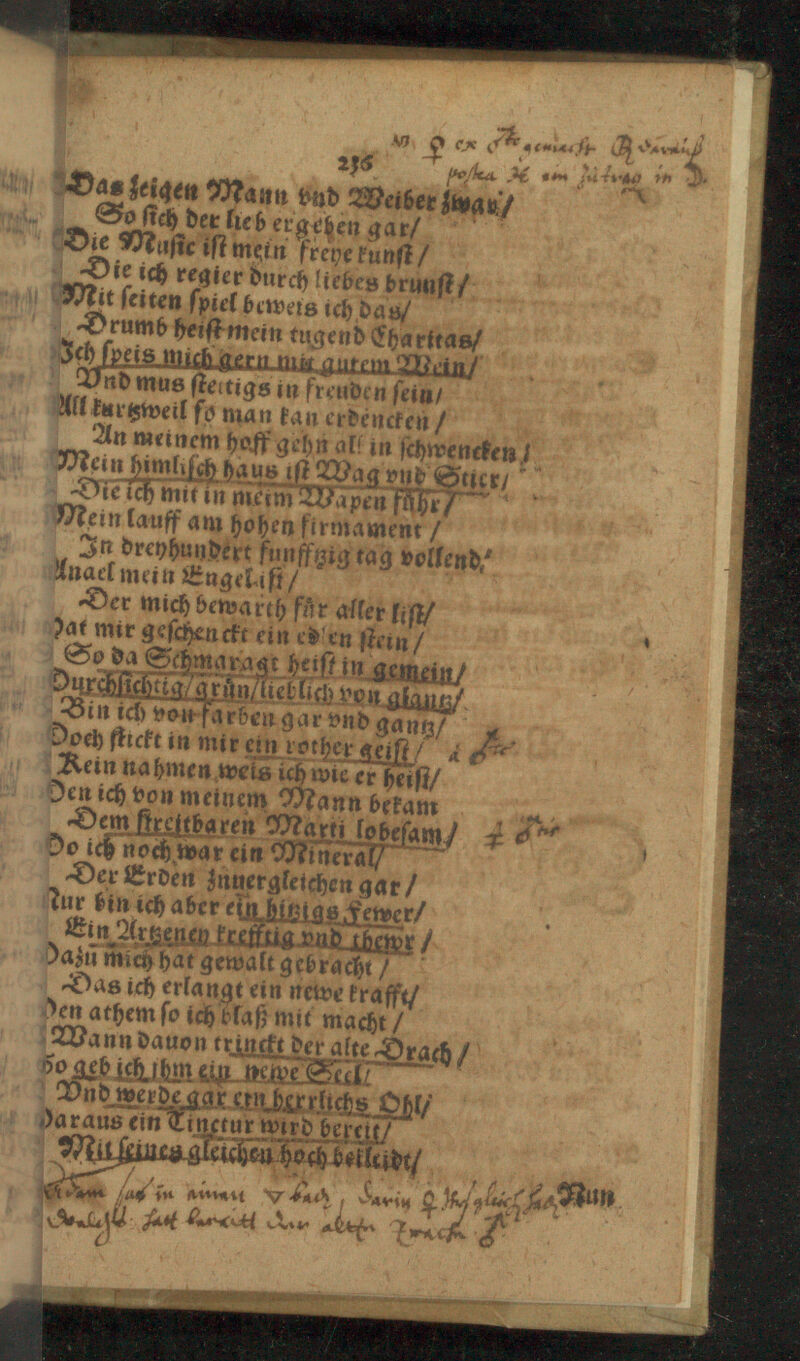 ♀ ex
236
postea
Das zeigen Mann vnd Weiber zwar/
So sich der lieb ergeben gar/
Die Music ist mein freye kunst/
Die ich regier durch liebes brunst/
Mit seiten spiel beweis ich das/
Drumb heist mein tugend Charitas/
Ich speis mich gern mit gutem Wein/
Vnd mus stettigs in freuden sein/
All kurtzweil so man kan erdencken/
An meinem hoff gehn all in schwencken/
Mein himlisch haus ist Wag vnd Stier/
Die ich mit in meim Wapen führ/
Mein lauff am hohen firmament/
In dreyhundert funfftzig tag vollend.
Anael mein Engel ist/
Der mich bewarth für aller list/
Hat mir geschenckt ein edlen stein/
So da Schmaragt heist in gemein/
Durchsichtig/grün/lieblich von glantz/
Bin ich von farben gar vnd gantz/
Doch stickt in mir ein rother geist/
Kein nahmen weis ich wie er heist/
Den ich von meinem Mann bekam
Dem streitbaren Marti lobesam/
Do ich noch war ein Mineral/
Der Erden zuuergleichen gar/
Nur bin ich aber ein hitzigs Fewer/
Ein Artzeney krefftig vnd thewr/
Dazu mich hat gewalt gebracht/
Das ich erlangt ein newe krafft/
Den athem so ich blaß mit macht/
Wann dauon trinckt der alte Drach/
So geb ich ihm ein newe Seel/
Vnd werde gar ein herrlichs Ohl/
Daraus ein Tinctur wird bereit/
Mit seines gleichen hoch bekleidt/
Nun
Adam saß in einem bach, darin
hatt bereitt der alte Drache